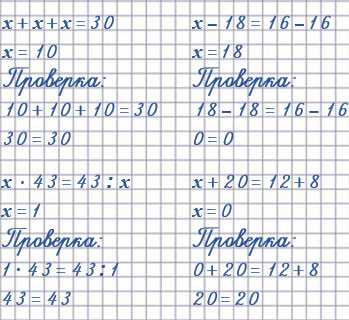 x+x+x=30
x=10
Проверка:
10+10+10=30
30=30
x-18=16-16
x=18
Проверка:
18-18=16-16
0=0
x·43=43:x
x=1
Проверка:
1·43=43:1
43=43
x+20=12+8
x=0
Проверка:
0+20=12+8
20=20